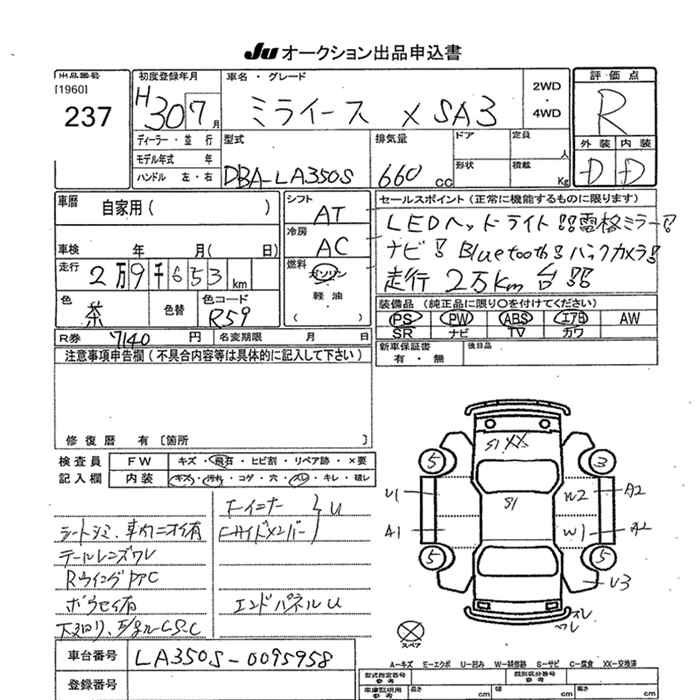 JU オークション出品申込書
出品番号
[1960]
237
初度登録年月
H30 7月
ディーラー・並行
モデル年式 年
ハンドル 左・右
車名・グレード
ミライース X SA3
2WD
・
4WD
評価点
R
外装 内装
D D
型式
DBA-LA350S
排気量
660 cc
ドア
形状
定員
人
積載
Kg
車歴 自家用( )
車検 年 月( 日)
走行 2万9千653km
色 茶 色替 色コード R59
シフト
AT
冷房
AC
燃料
ガソリン
軽油
( )
セールスポイント(正常に機能するものに限ります)
LEDヘッドライト!!電格ミラー!
ナビ! Bluetooth!バックカメラ!
走行 2万km 台!!
装備品(純正品に限り○を付けてください)
PS PW ABS エアB AW
SR ナビ TV カワ
新車保証書
有・無
後日品
R券 7140 円 名変期限 月 日
注意事項申告欄(不具合内容等は具体的に記入して下さい)
修復暦 有 [箇所 ]
検査員 FW キズ・飛石・ヒビ割・リペア跡・×要
記入欄 内装 キズ・汚れ・コゲ・穴・スレ・キレ・破レ
シートシミ、車内ニオイ有
テールレンズワレ
Rウイングドア C
ボウセイ有
下廻り、 C.S.C
Fインナー
Fサイドメンバー
U
エンドパネルU
S1 XX
S1
5
3
5
5
U1
A1
W2 A2
W1 A2
U3
スレ
ワレ
スペア
A-キズ E-エクボ U-凹み W-補修跡 S-サビ C-腐食 XX-交換済
車台番号 LA350S-0095958
登録番号
型式指定番号
参考
類別区分番号
参考
車庫証明用
参考
長さ cm 幅 cm 高さ cm